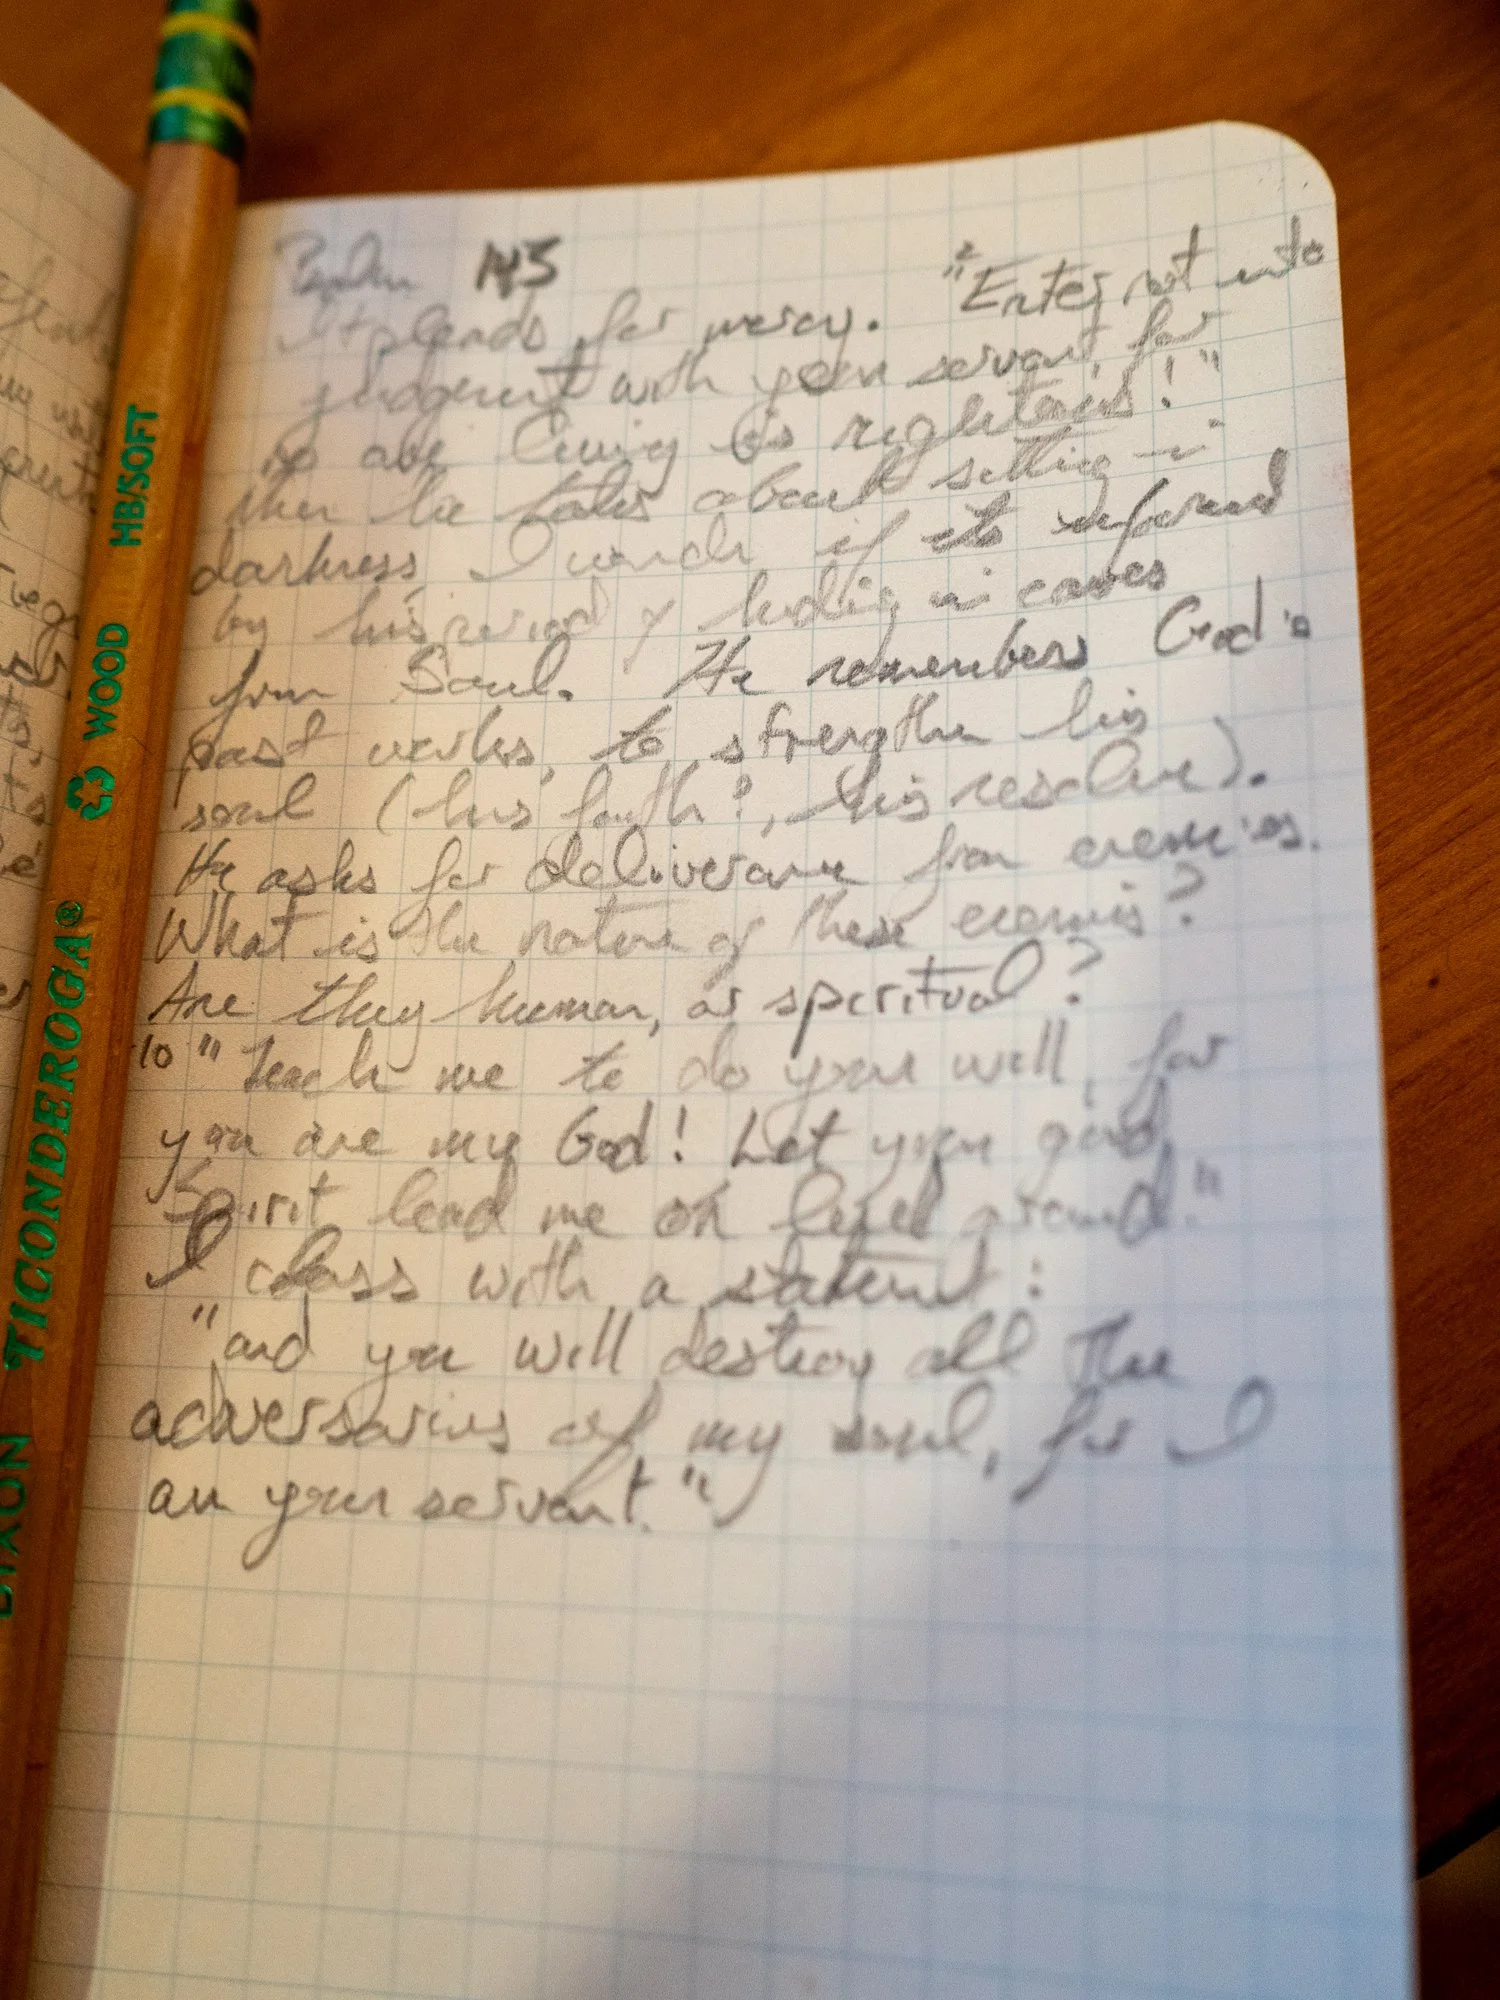 Psalm 143
It pleads for mercy. "² Enter not into
judgment with your servant, for
no one living is righteous!"
then he talks about sitting in
darkness, I wonder if its informed
by his period of hiding in caves
from Saul. He remembers God's
past works, to strengthen his
soul (his faith?, his resolve).
He asks for deliverance from enemies.
What is the nature of these enemis?
Are they human, or spiritual?
10 "Teach me to do your will, for
you are my God! Let your good
Spirit lead me on level ground."
I close with a statement:
"and you will destroy all the
adversaries of my soul, for I
am your servant."
DIXON TICONDEROGA® WOOD HB/SOFT